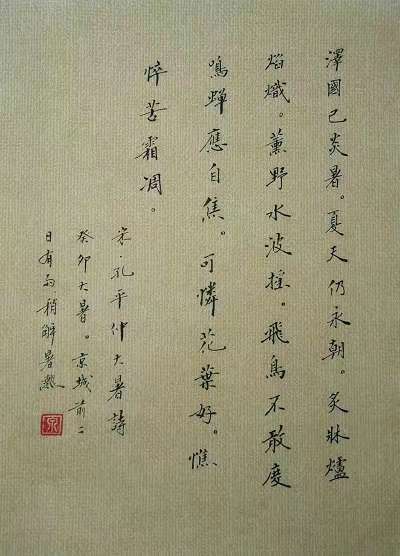 澤國已炎暑。夏天仍永朝。炙牀爐
焰熾。薰野水波摇。飛鳥不敢度
鳴蟬應自焦。可憐花葉好。憔
悴苦霜凋。
宋·孔平仲大暑詩
癸卯大暑。京城前二
日有雨稍解暑熱